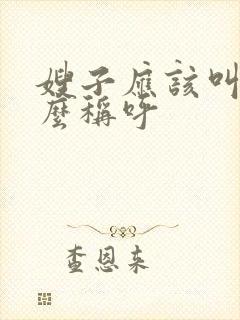 嫂子應該叫
麼稱呼
查恩来